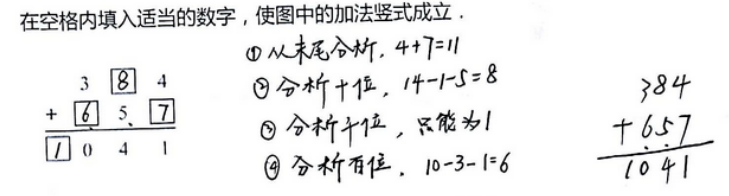 在空格内填入适当的数字，使图中的加法竖式成立．
3 8 4
+ 6 5 7
1 0 4 1
①从末尾分析，4+7=11
②分析十位，14-1-5=8
③分析千位，只能为1
④分析百位．10-3-1=6
384
+657
1041